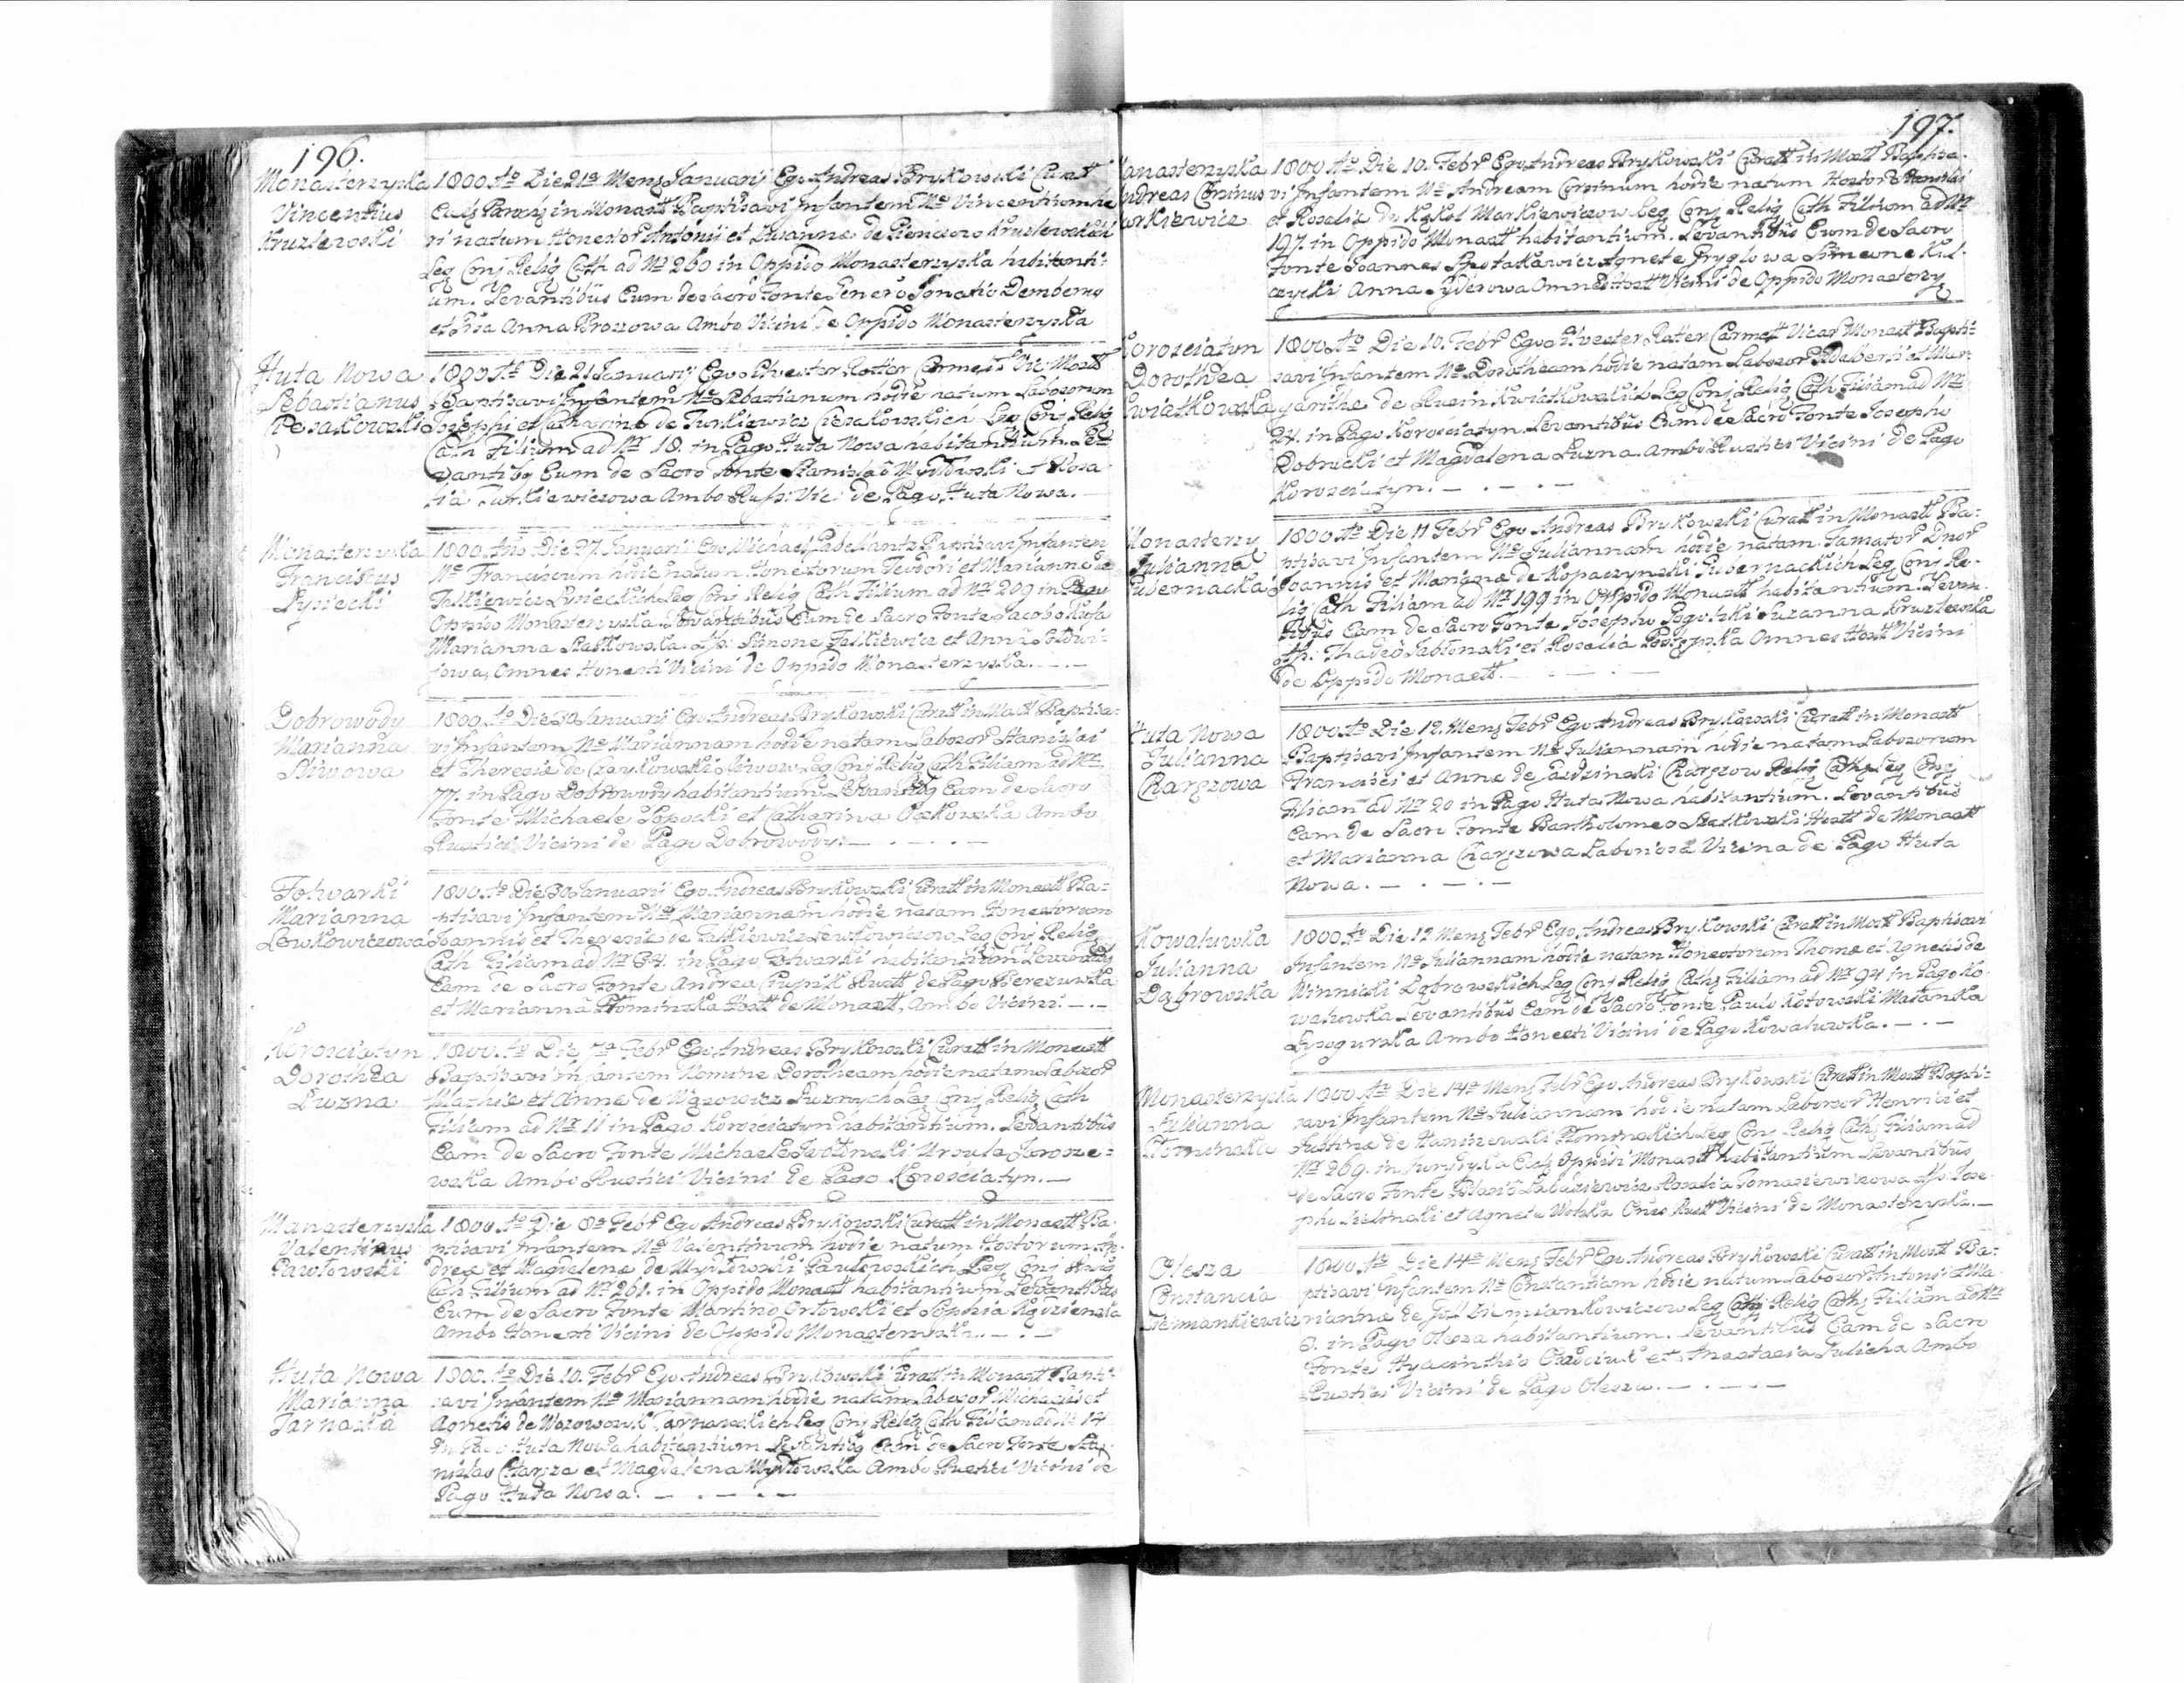 196.
Monasterzyska
Vincentius
Kruzlewski
1800 Ao Die 21a Mens Januarij Ego Andreas Brykowski Curatt
Eccls Paroch in Monastt Baptisavi Infantem Ne Vincentium he
ri natum Honestor Antonii et Zusanna de Kruzlewskich
Leg Conj Relig Cath ad Nr 260 in Oppido Monasterzyska habitanti:
um. Levantibus Eum de Sacro Fonte Genero Ignatio Dembeno
et Anna Brozowa Ambo Vicini de Oppido Monasterzyska
Huta Nowa
Sebastianus
Cierakowski
1800 Ao Die 21 Januarij Ego Silvester Rotter Carmett Vic: Mostt
Baptisavi Infantem Ne Sebastianum hodie natum Labororum
Josephi et Catharina de Turkiewicz Cierakowskich Leg Conj Relig
Cath Filium ad Nr 18. in Pago Huta Nowa habitantium. Le
vantibq Eum de Sacro Fonte Stanislao Mydlowski et Rosa
lia Turkiewiczowa Ambo Rust: Vic: de Pago Huta Nowa.
Monasterzyska
Franciscus
Lysiecki
1800 Ano Die 27 Januarij Ego Michael Baptisavi Infantem
Ne Franciscum hodie natum Honestorum Teodori et Marianna de
Falkiewicz Lysieckich Leg Conj Relig Cath Filium ad Nr 209 in Pago
Oppido Monasterzyska. Levantibus Eum de Sacro Fonte Jacobo
Marianna Statkowska. As: Simone Falkiewicz et Anna
jowa, Omnes Honesti Vicini de Oppido Monasterzyska.
Dobrowody
Marianna
Sliwowa
1800 Ao Die 30 Januarij Ego Andreas Brykowski Curatt in Mostt Baptisa:
vi Infantem Ne Mariannam hodie natam Laboror Stanislai
et Theresia de Czaykowski Sliwow Leg Conj Relig Cath Filiam ad Nr
77. in Pago Dobrowody habitantium. Levantibq Eam de Sacro
Fonte Michaele Popocki et Catharina Ambo
Rustici Vicini de Pago Dobrowody.
Folwarki
Marianna
Lewkowiczowa
1800. Ao Die 30 Januarij Ego Andreas Brykowski Curatt in Monastt Ba:
ptisavi Infantem Ne Mariannam hodie natam Honestorum
Joannis et Theresia de Falkiewicz Lewkowiczow Leg Conj Relig
Cath Filiam ad Nr 34. in Pago Folwarki habitantium Levantibq
Eam de Sacro Fonte Andrea Rustt de Pago Berezuwka
et Marianna Stominska Hostt de Monastt, Ambo Vicini.
Korosciatyn
Dorothea
Luzna
1800. Ao Die 7a Febr Ego Andreas Brykowski Curatt in Monastt
Baptisavi Infantem Nomine Dorotheam hodie natam Laboror
Mathia et Anna de Luznych Leg Conj Relig Cath
Filiam ad Nr 11 in Pago Korosciatyn habitantium. Levantibus
Eam de Sacro Fonte Michaele Ursula Jarosze:
wska Ambo Rustici Vicini de Pago Korosciatyn.
Manasterzyska
Valentinus
Pawlowski
1800 Ao Die 8a Febr Ego Andreas Brykowski Curatt in Monastt Ba.
ptisavi Infantem Ne Valentinum hodie natum Hostorum An.
drea et Magdalena de Mydlowski Pawlowskich Leg Conj Relig
Cath Filium ad Nr 261. in Oppido Monastt habitantium Levantibus
Eum de Sacro Fonte Martino Orlowski et Sophia
Ambo Honesti Vicini de Oppido Monasterzyska.
Huta Nowa
Marianna
Tarnaska
1800. Ao Die 10. Febr Ego Andreas Brykowski Curatt in Monastt Bapti:
savi Infantem Ne Mariannam hodie natam Laboror Michaelis et
Agnetis de Tarnawskich Leg Conj Relig Cath Filiam ad Nr 14
in Pago Huta Nowa habitantium Levantibq Eam de Sacro Fonte Sta:
nislao Charza et Magdalena Mydlowska Ambo Rustici Vicini de
Pago Huta Nowa.
197.
Manasterzyska
Andreas Corsinus
Markiewicz
1800 Ao Die 10. Febr Ego Andreas Brykowski Curatt in Mostt Baptisa.
vi Infantem Ne Andream Corsinum hodie natum Hostor
et Rosalia de Kąkol Markiewiczow Leg Conj Relig Cath Filium ad Nr
197. in Oppido Monastt habitantium. Levantibus Eum de Sacro
Fonte Joannes Agnete Gryglowa Simeone Kul.
czycki Anna Syderowa Omnes Hostt Vicini de Oppido Monasterzy
Korosciatyn
Dorothea
Kwiatkowska
1800 Ao Die 10. Febr Ego Silvester Rotter Carmett Vicar Monastt Bapti:
savi Infantem Ne Dorotheam hodie natam Laboror Adalberti et Mar:
garitha de Rusin Kwiatkowskich Leg Conj Relig Cath Filiam ad Nr
24. in Pago Korosciatyn. Levantibus Eum de Sacro Fonte Josepho
Dobrucki et Magdalena Luzna. Ambo Rustici Vicini de Pago
Korosciatyn.
Monasterzy
Julianna
Gubernacka
1800 Ao Die 11 Febr Ego Andreas Brykowski Curatt in Monastt Ba:
ptisavi Infantem Ne Juliannam hodie natam Famator Dnor
Joannis et Mariana de Kopaczynski Gubernackich Leg Conj Re.
lig Cath Filiam ad Nr 199 in Oppido Monastt habitantium. Levan
tibus Eam de Sacro Fonte Josepho Rogolski Suzanna Kruzlewska
As: Thadeo Jablonski et Rosalia Omnes Hostt Vicini
de Oppido Monastt.
Huta Nowa
Julianna
Charzowa
1800 Ao Die 12. Mens Febr Ego Andreas Brykowski Curatt in Monastt
Baptisavi Infantem Ne Juliannam hodie natam Labororum
Francisci et Anna de Charzow Relig Cath Leg Conj
Filiam ad Nr 20 in Pago Huta Nowa habitantium. Levantibus
Eam de Sacro Fonte Bartholomeo Statkowski Hostt de Monastt
et Marianna Charzowa Laboriosa Vicina de Pago Huta
Nowa.
Kowaluwka
Julianna
Dąbrowska
1800 Ao Die 12 Mens Febr Ego Andreas Brykowski Curatt in Mostt Baptisavi
Infantem Ne Juliannam hodie natam Honestorum Thoma et Agnetis de
Winnicki Dąbrowskich Leg Conj Relig Cath Filiam ad Nr 94 in Pago Ko.
waluwka Levantibus Eam de Sacro Fonte Paulo Kotowski Marianka
Lysogurska Ambo Honesti Vicini de Pago Kowaluwka.
Monasterzyska
Julianna
Stominska
1800 Ao Die 14a Mens Febr Ego Andreas Brykowski Curatt in Mostt Bapti:
savi Infantem Ne Juliannam hodie natam Laboror Henrici et
Justina de Haniszewski Stominskich Leg Conj Relig Cath Filiam ad
Nr 269. in Juridyka Eccls Oppidi Monastt habitantium Levantibus
de Sacro Fonte Blasio Labaziewicz Rosalia Tomasiewiczowa As: Jose.
pho Zielinski et Agneta Wolska Omes Rustt Vicini de Monasterzyska.
Olesza
Constancia
Ziemiankiewicz
1800 Ao Die 14a Mens Febr Ego Andreas Brykowski Curatt in Mostt Ba:
ptisavi Infantem Ne Constantiam hodie natam Laboror Antonii et Ma.
rianna de Ziemiankowiczow Leg Conj Relig Cath Filiam ad Nr
3. in Pago Olesza habitantium. Levantibus Eam de Sacro
Fonte Hyacinthio et Anastasia Gulicha Ambo
Rustici Vicini de Pago Olesza.